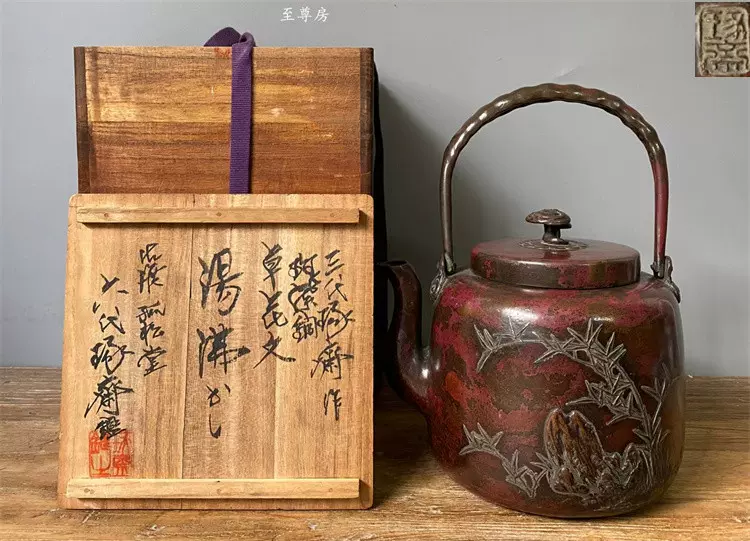 至尊房
琢齋
三代琢齋作
斑紫銅
草花文
湯沸かし
松堂
六代琢齋鑑